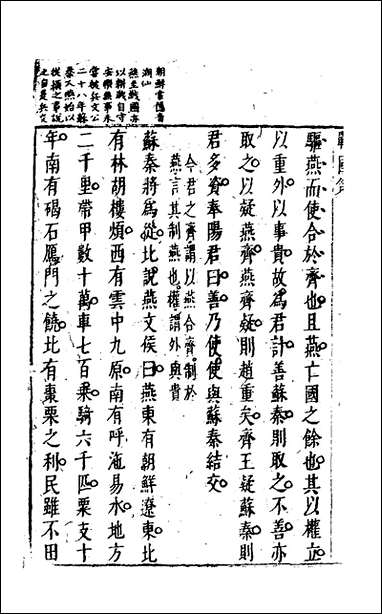 驅燕而使合於齊也且燕亡國之餘也其以權立
以重外以事貴故為君計善蘇秦則取之不善亦
取之以疑燕齊燕齊疑則趙重矣齊王疑蘇秦則
君多資奉陽君曰善乃使使與蘇秦結交
今君之齊謂以燕合齊制於
燕言其制燕也權謂外與貴
蘇秦將為從北說燕文侯曰燕東有朝鮮遼東北
有林胡樓煩西有雲中九原南有呼沲易水地方
二千里帶甲數十萬車七百乘騎六千匹粟支十
年南有碣石鴈門之饒北有棗栗之利民雖不田
朝鮮音
潮仙
燕至戰國亦
以耕戰自守
安樂無事未
嘗被兵文公
二十八年蘇
秦入燕始以
從橫之事說
之自是兵交